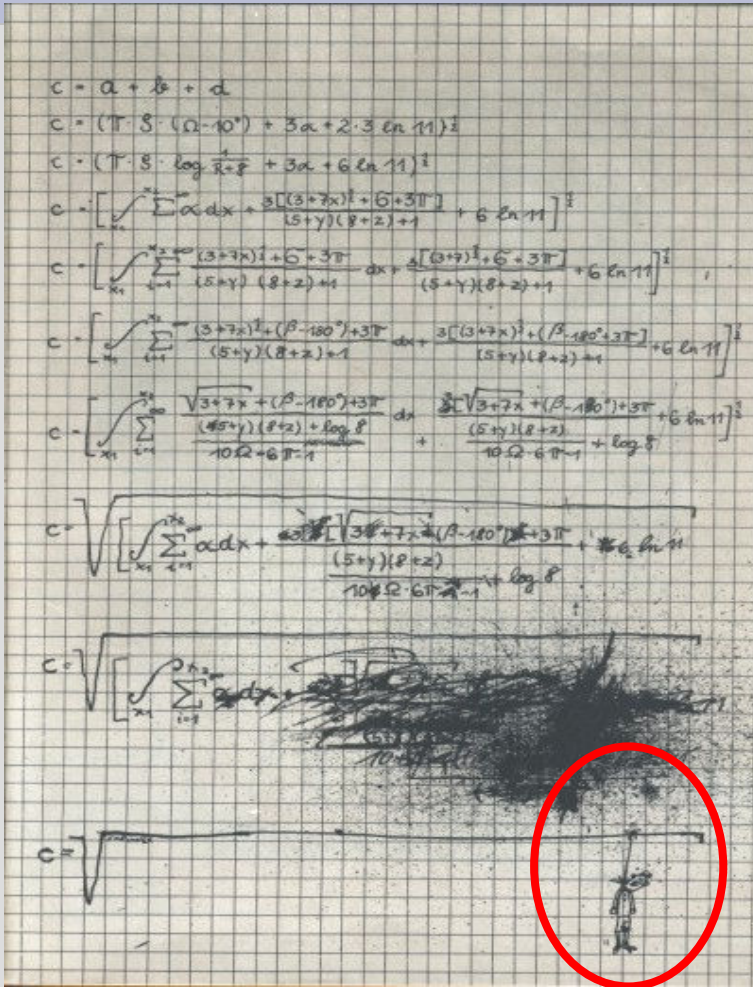 c = a + b + d
c = (π · S · (Ω-10°) + 3α + 2·3 ln 11)^½
c = (π · S · log 1/(R+8) + 3α + 6 ln 11)^½
c = [∫x₁^x₂ Σ^∞ α dx + 3[(3+7x)^½ + 6 + 3π]/((5+y)(8+z)+1) + 6 ln 11]^½
c = [∫x₁^x₂ Σi=1^∞ ((3+7x)^½ + 6 + 3π)/((5+y)(8+z)+1) dx + 3[(3+7)^½ + 6 + 3π]/((5+y)(8+z)+1) + 6 ln 11]^½
c = [∫x₁^x₂ Σi=1^∞ ((3+7x)^½ + (β-180°) + 3π)/((5+y)(8+z)+1) dx + 3[(3+7x)^½ + (β-180°+3π]/((5+y)(8+z)+1) + 6 ln 11]^½
c = [∫x₁^x₂ Σi=1^∞ (√(3+7x) + (β-180°) + 3π)/(((5+y)(8+z) + log 8)/(10Ω-6π-1)) dx + 3[√(3+7x) + (β-180°) + 3π/((5+y)(8+z)/(10Ω·6π-1) + log 8) + 6 ln 11]^½
c = √[∫x₁^x₂ Σi=1^∞ α dx + [√(3+7x) + (β-180°) + 3π/((5+y)(8+z)/(10Ω·6π-1) + log 8) + 6 ln 11
c = √[∫x₁^x₂ Σi=1^∞ dx +
c = √